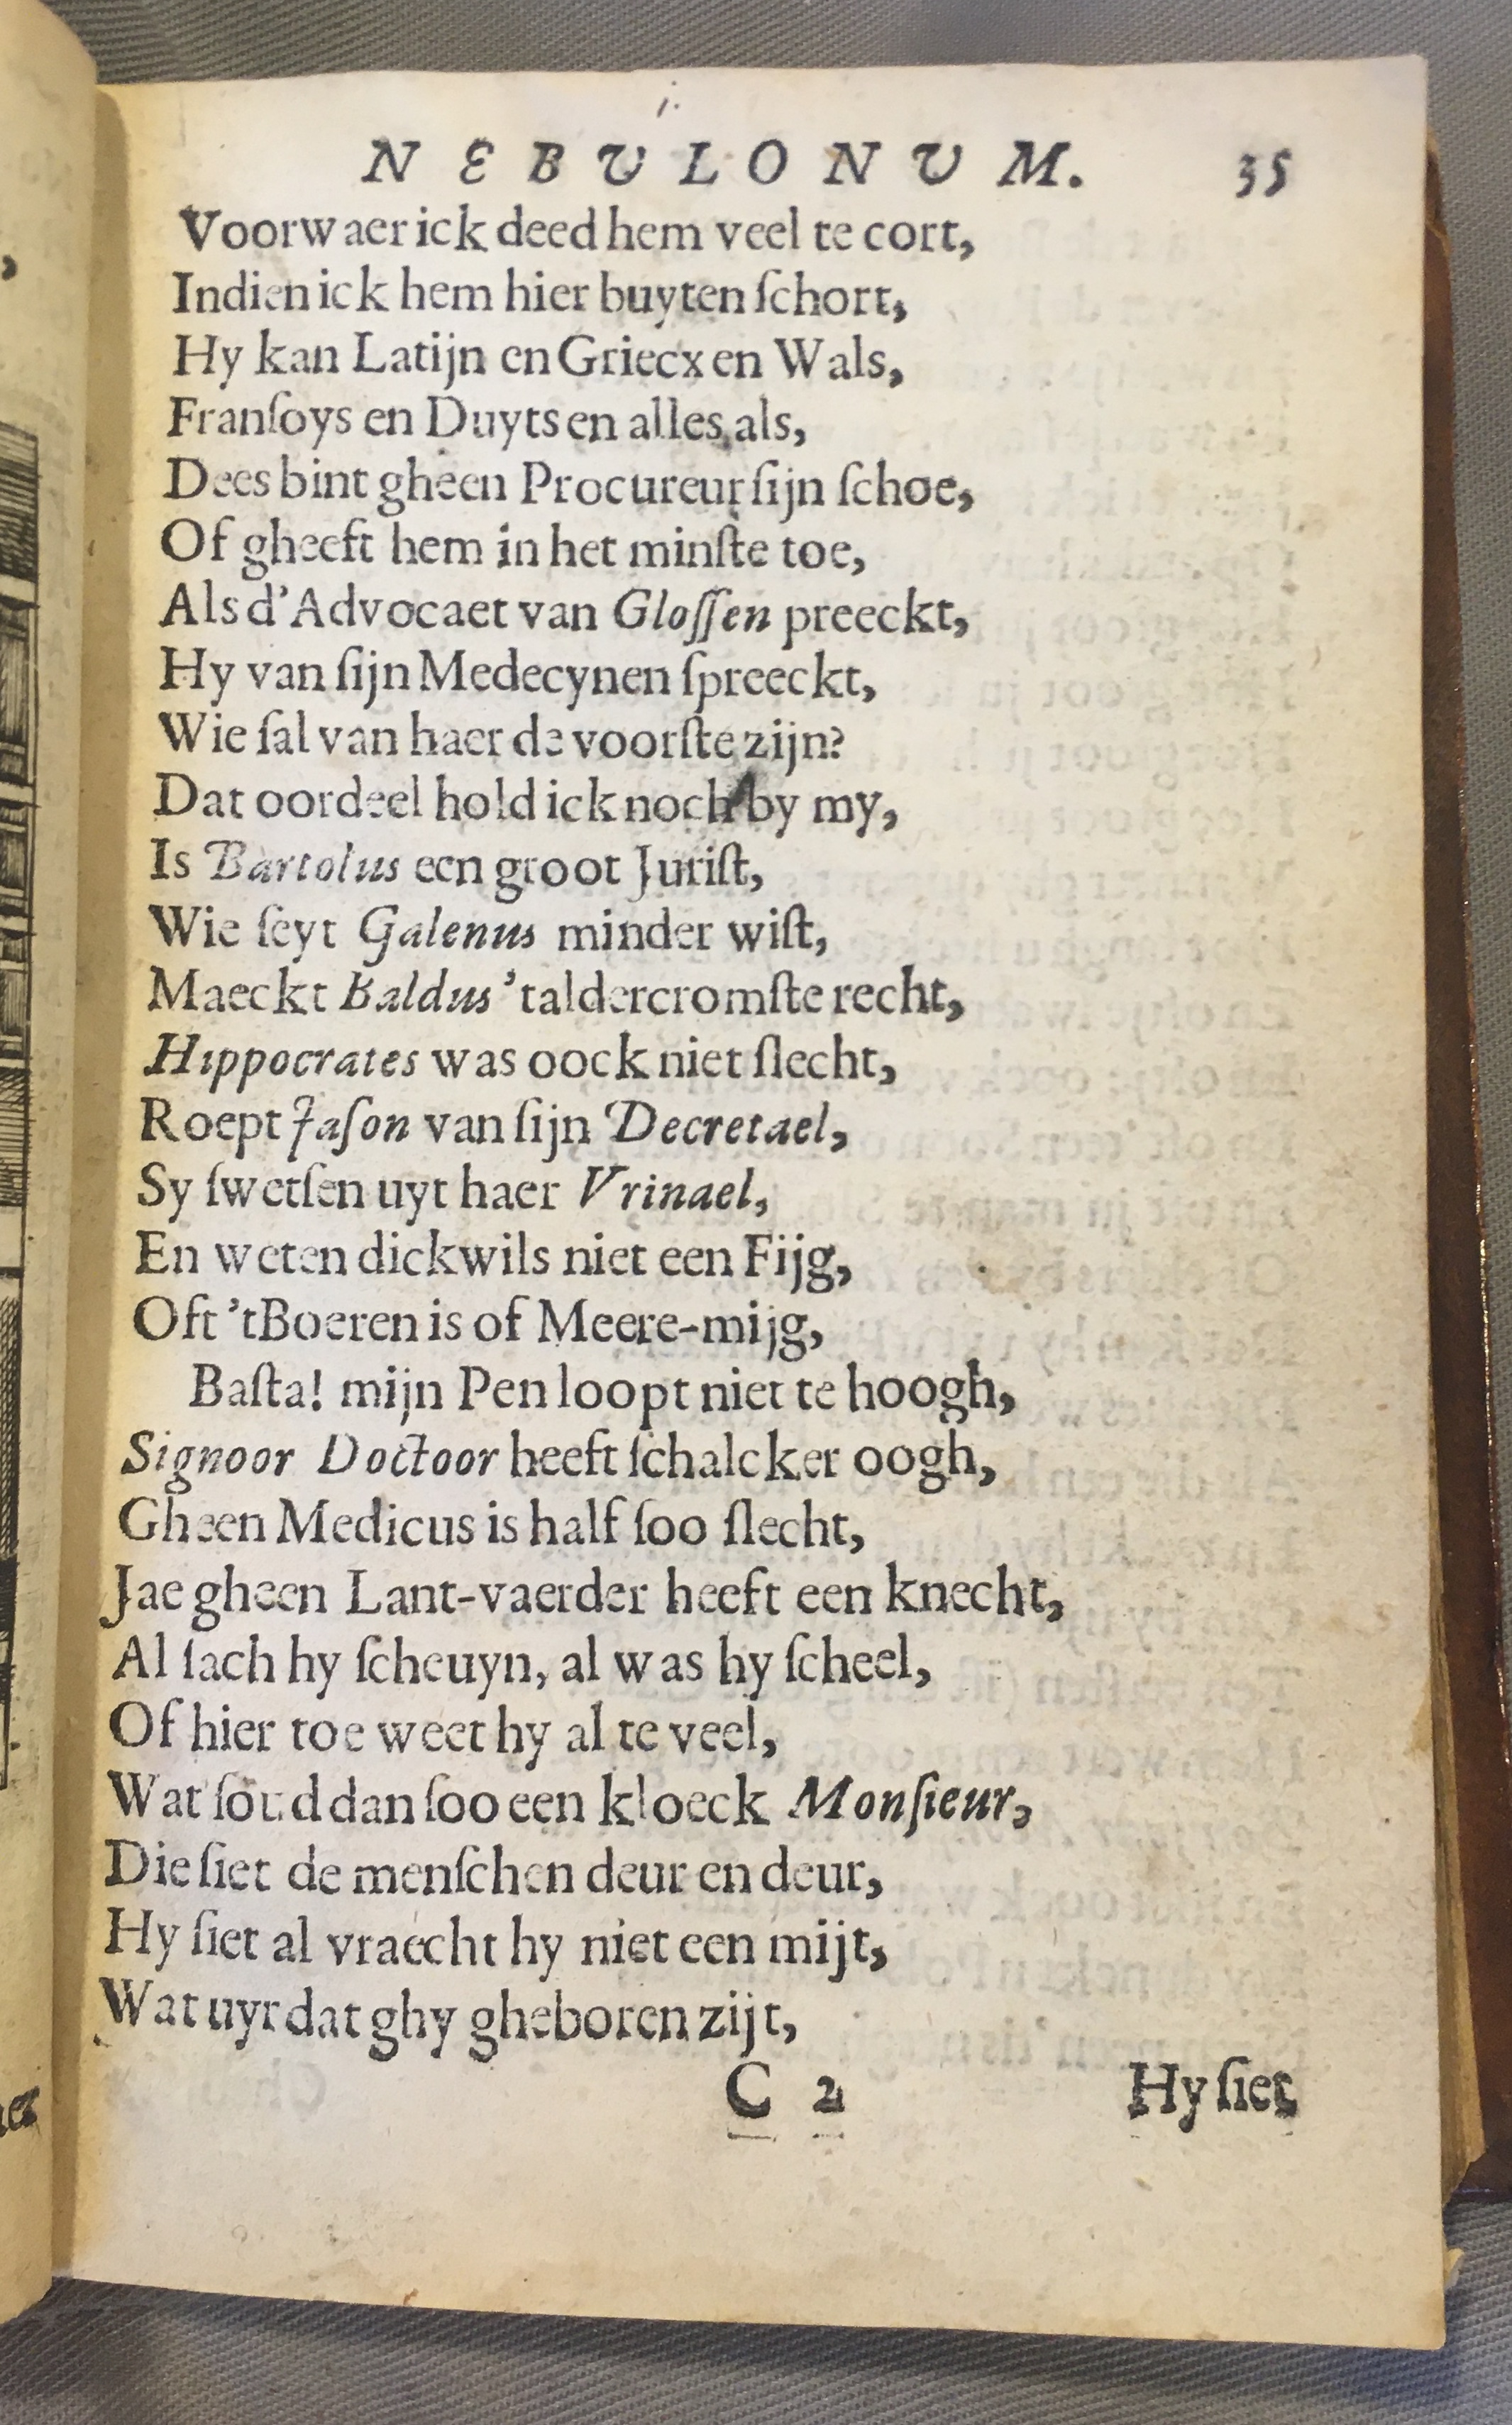 NEBULONUM. 35
Voorwaer ick deed hem veel te cort,
Indien ick hem hier buyten ſchort,
Hy kan Latijn en Griecx en Wals,
Franſoys en Duyts en alles als,
Dees bint gheen Procureur ſijn ſchoe,
Of gheeft hem in het minſte toe,
Als d'Advocaet van Gloſſen preeckt,
Hy van ſijn Medecynen ſpreeckt,
Wie ſal van haer de voorſte zijn?
Dat oordeel hold ick noch by my,
Is Bartolus een groot Juriſt,
Wie ſeyt Galenus minder wiſt,
Maeckt Baldus 't aldercromſte recht,
Hippocrates was oock niet ſlecht,
Roept Jaſon van ſijn Decretael,
Sy ſwetſen uyt haer Vrinael,
En weten dickwils niet een Fijg,
Oft 't Boeren is of Meere-mijg,
Baſta! mijn Pen loopt niet te hoogh,
Signoor Doctoor heeft ſchalcker oogh,
Gheen Medicus is half ſoo ſlecht,
Jae gheen Lant-vaerder heeft een knecht,
Al ſach hy ſcheuyn, al was hy ſcheel,
Of hier toe weet hy al te veel,
Wat ſoud dan ſoo een kloeck Monſieur,
Die ſiet de menſchen deur en deur,
Hy ſiet al vraecht hy niet een mijt,
Wat uyr dat ghy gheboren zijt,
C 2 Hy ſiet